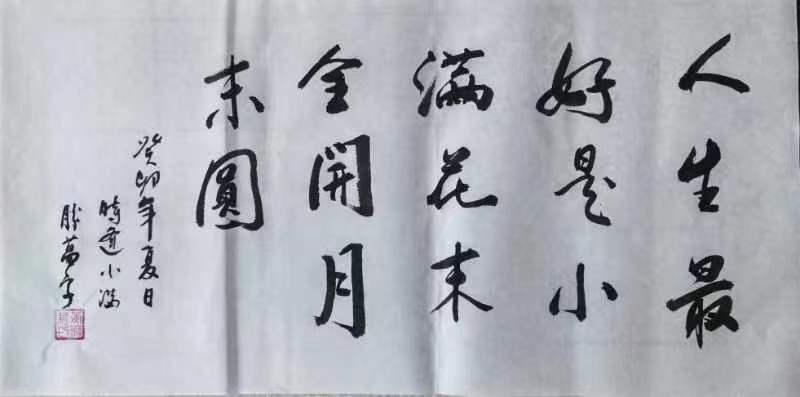 人生最
好是小
满花未
全開月
未圓
癸卯年夏日
時逢小满